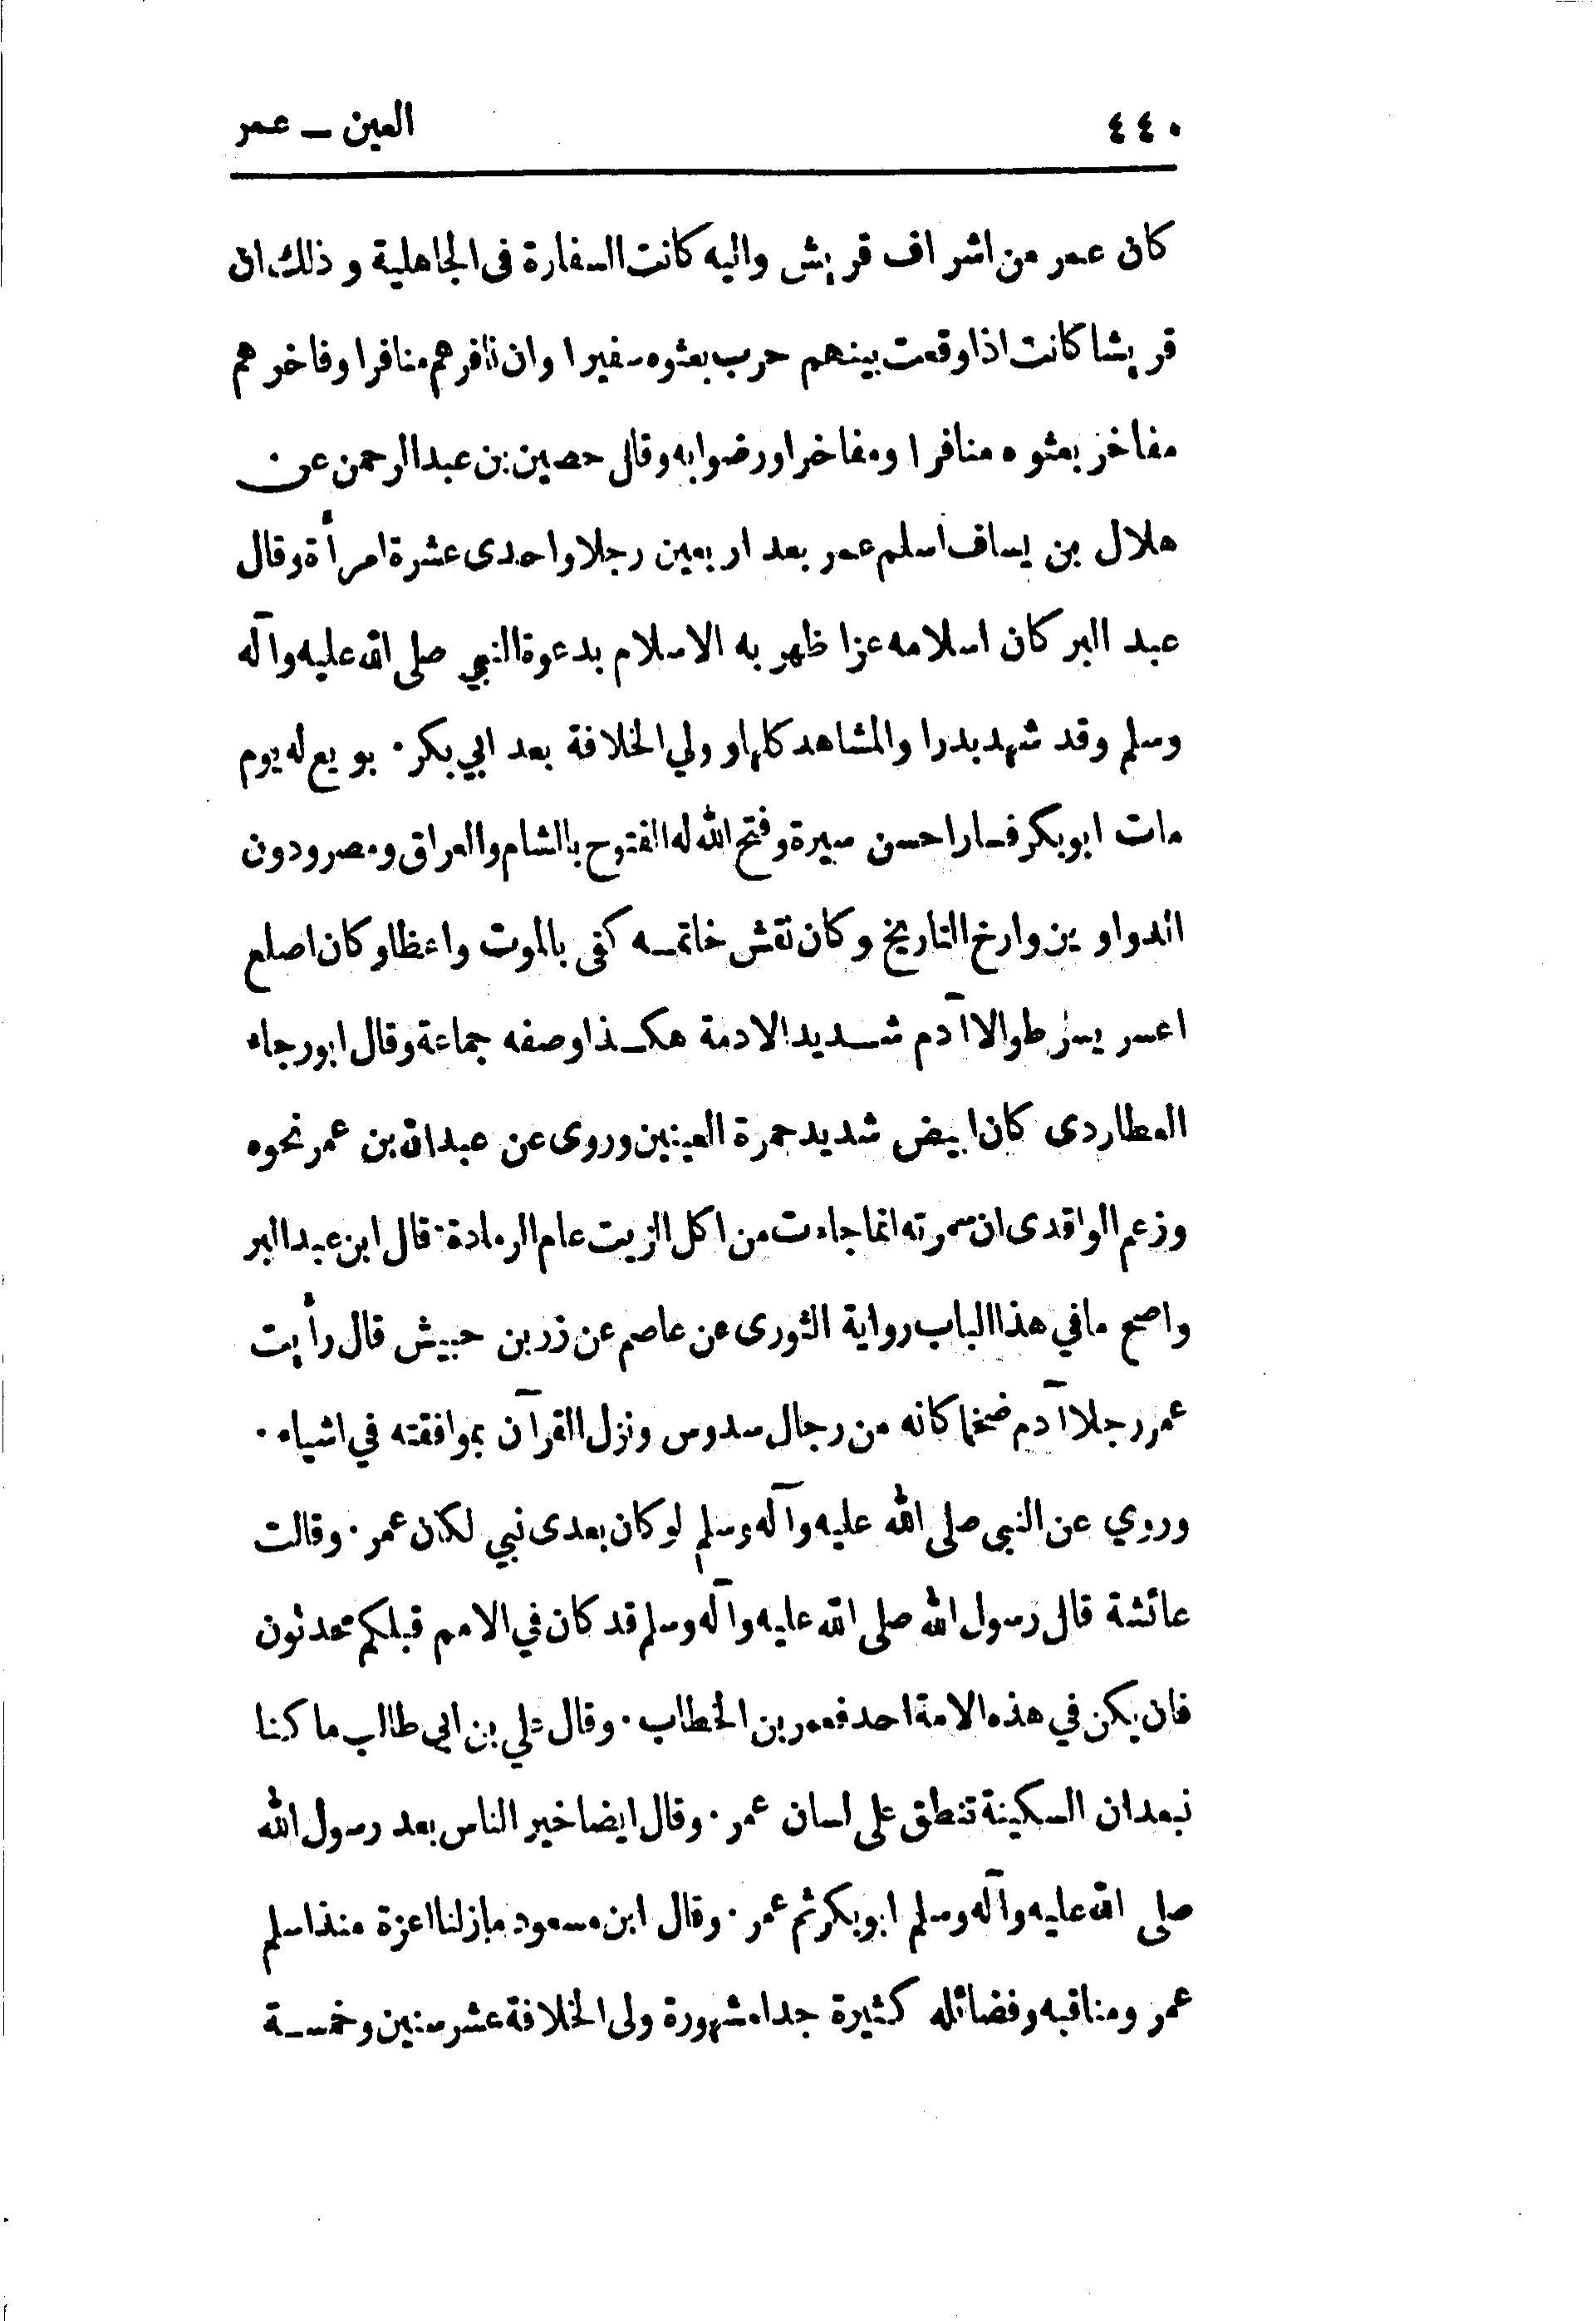 ٤٤٠
العين ـ عمر
كان عمر من اشراف قريش واليه كانت السفارة فى الجاهلية و ذلك ان
قريشا كانت اذا وقعت بينهم حرب بعثوه سفيرا وان نافرهم منافرا وفاخرهم
مفاخر بعثوه منافرا ومفاخرا ورضوا به وقال حصين بن عبد الرحمن عن
هلال بن يساف اسلم عمر بعد اربعين رجلا واحدى عشرة امرأة وقال
عبد البر كان اسلامه عزا ظهر به الاسلام بدعوة النبي صلى الله عليه وآله
وسلم وقد شهد بدرا والمشاهد كلها و ولي الخلافة بعد ابي بكر · بويع له يوم
مات ابوبكر فسار احسن سيرة وفتح الله له الفتوح بالشام والعراق ومصر ودون
الدواوين وارخ التاريخ وكان نقش خاتمه كفى بالموت واعظا وكان اصلع
اعسر يسر طوالا آدم شديد الادمة هكذا وصفه جماعة وقال ابو رجاء
العطاردى كان ابيض شديد حمرة العينين وروى عن عبد الله بن عمر نحوه
وزعم الواقدى ان سمرته انما جاءت من اكل الزيت عام الرمادة · قال ابن عبد البر
واصح ما في هذا الباب رواية الثورى عن عاصم عن زر بن حبيش قال رأيت
عمر رجلا آدم ضخما كانه من رجال سدوس ونزل القرآن بموافقته في اشياء ·
وروي عن النبى صلى الله عليه وآله وسلم لو كان بعدى نبي لكان عمر · وقالت
عائشة قال رسول الله صلى الله عليه وآله وسلم قد كان في الامم قبلكم محدثون
فان يكن في هذه الامة احد فعمر بن الخطاب · وقال علي بن ابي طالب ما كنا
نبعد ان السكينة تنطق على لسان عمر · وقال ايضا خير الناس بعد رسول الله
صلى الله عليه وآله وسلم ابو بكر ثم عمر · وقال ابن مسعود ما زلنا اعزة منذ اسلم
عمر ومناقبه وفضائله كثيرة جدا مشهورة ولى الخلافة عشر سنين وخمسة